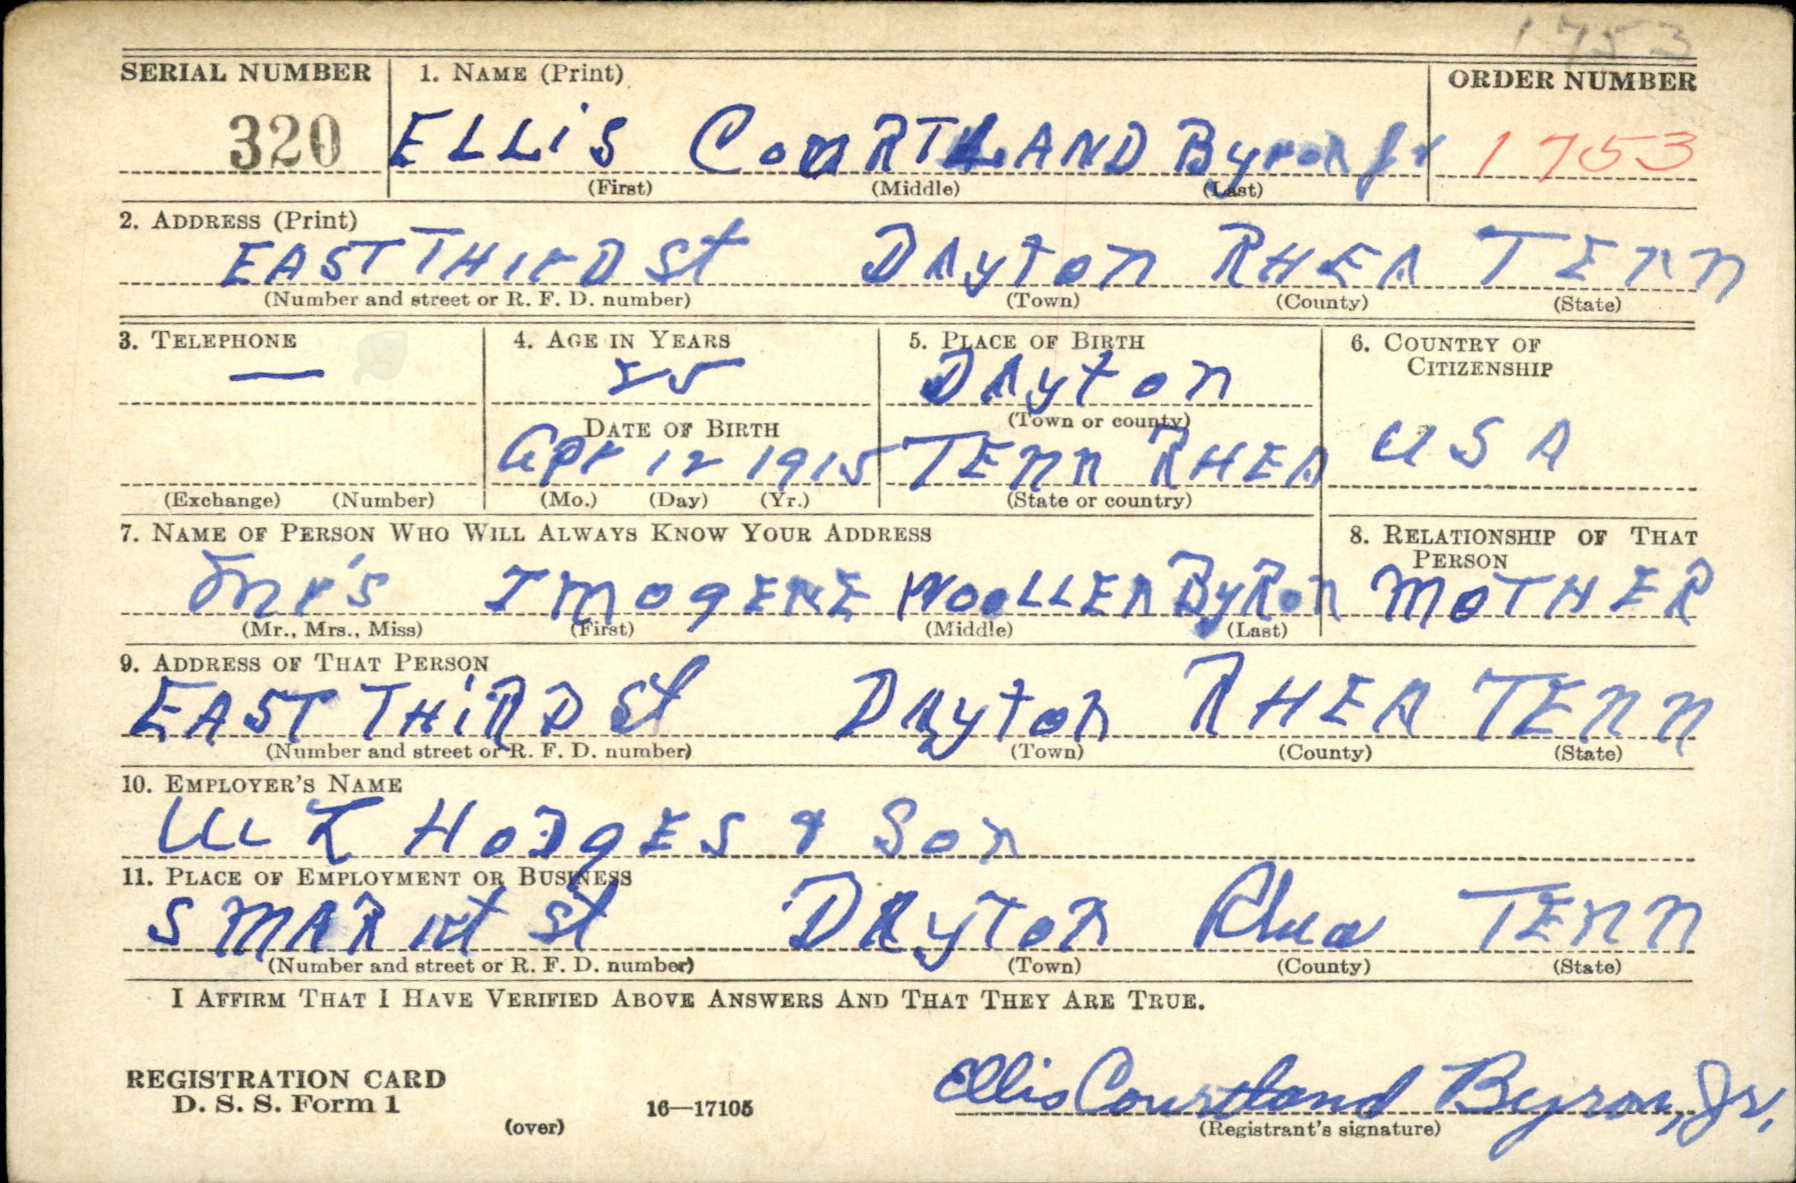 1753
SERIAL NUMBER 1. NAME (Print) ORDER NUMBER
320 ELLiS COURTLAND Byron Jr 1753
(First) (Middle) (Last)
2. ADDRESS (Print)
EAST THIRD St DAyton RHEA TENN
(Number and street or R. F. D. number) (Town) (County) (State)
3. TELEPHONE 4. AGE IN YEARS 5. PLACE OF BIRTH 6. COUNTRY OF CITIZENSHIP
— 25 DAyton
DATE OF BIRTH (Town or county)
Apr 12 1915 TENN RHEA USA
(Exchange) (Number) (Mo.) (Day) (Yr.) (State or country)
7. NAME OF PERSON WHO WILL ALWAYS KNOW YOUR ADDRESS 8. RELATIONSHIP OF THAT PERSON
Mr's ImogENE WooLLEN ByRon MOTHER
(Mr., Mrs., Miss) (First) (Middle) (Last)
9. ADDRESS OF THAT PERSON
EAST THiRD St DAyton RHEA TENN
(Number and street or R. F. D. number) (Town) (County) (State)
10. EMPLOYER'S NAME
W L HODgES & Son
11. PLACE OF EMPLOYMENT OR BUSINESS
S MARket St DAyTon Rhea TENN
(Number and street or R. F. D. number) (Town) (County) (State)
I AFFIRM THAT I HAVE VERIFIED ABOVE ANSWERS AND THAT THEY ARE TRUE.
REGISTRATION CARD
D. S. S. Form 1
(over) 16—17105
Ellis Courtland Byron, Jr.
(Registrant's signature)